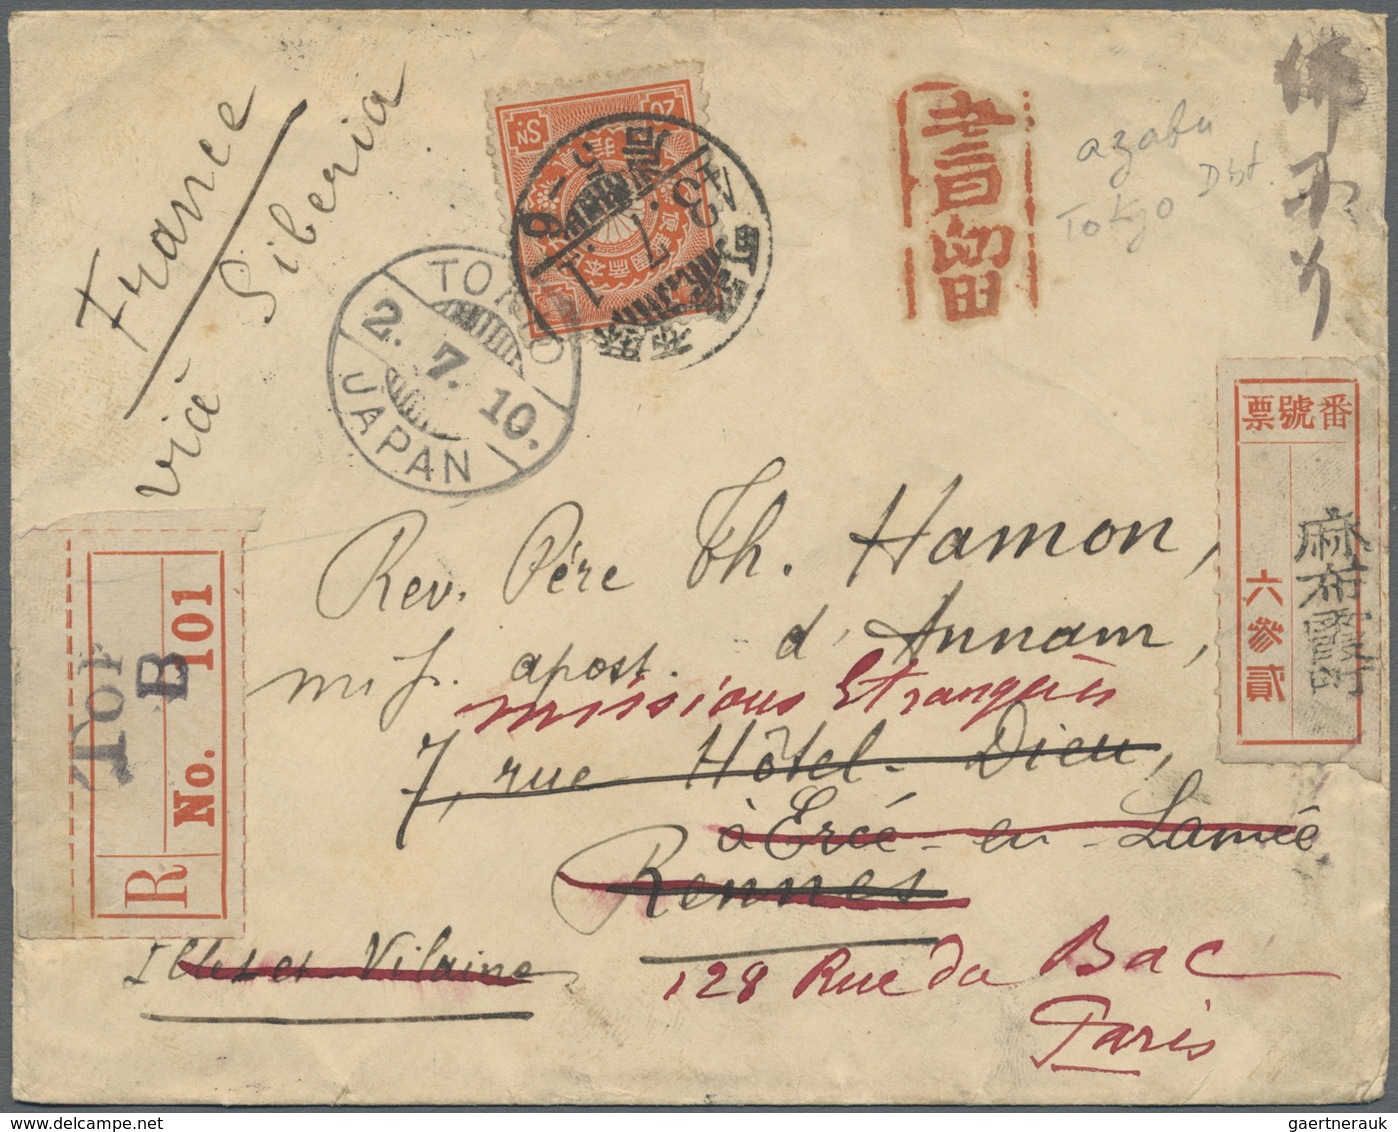 France
viâ Siberia
20 Sn.
TOKIO
2. 7. 10.
JAPAN
43.7.1
書留
azabu
Tokyo Dist.
佛
番號票
六參貳
麻布霞町
R No. 101
B
Rev. Père Th. Hamon,
miss. apost. d'Annam,
missions Etrangères
7, rue Hôtel-Dieu,
à Ercé-en-Lamée
Rennes
Ille-et-Vilaine
128 Rue du Bac
Paris
gaertnerauk